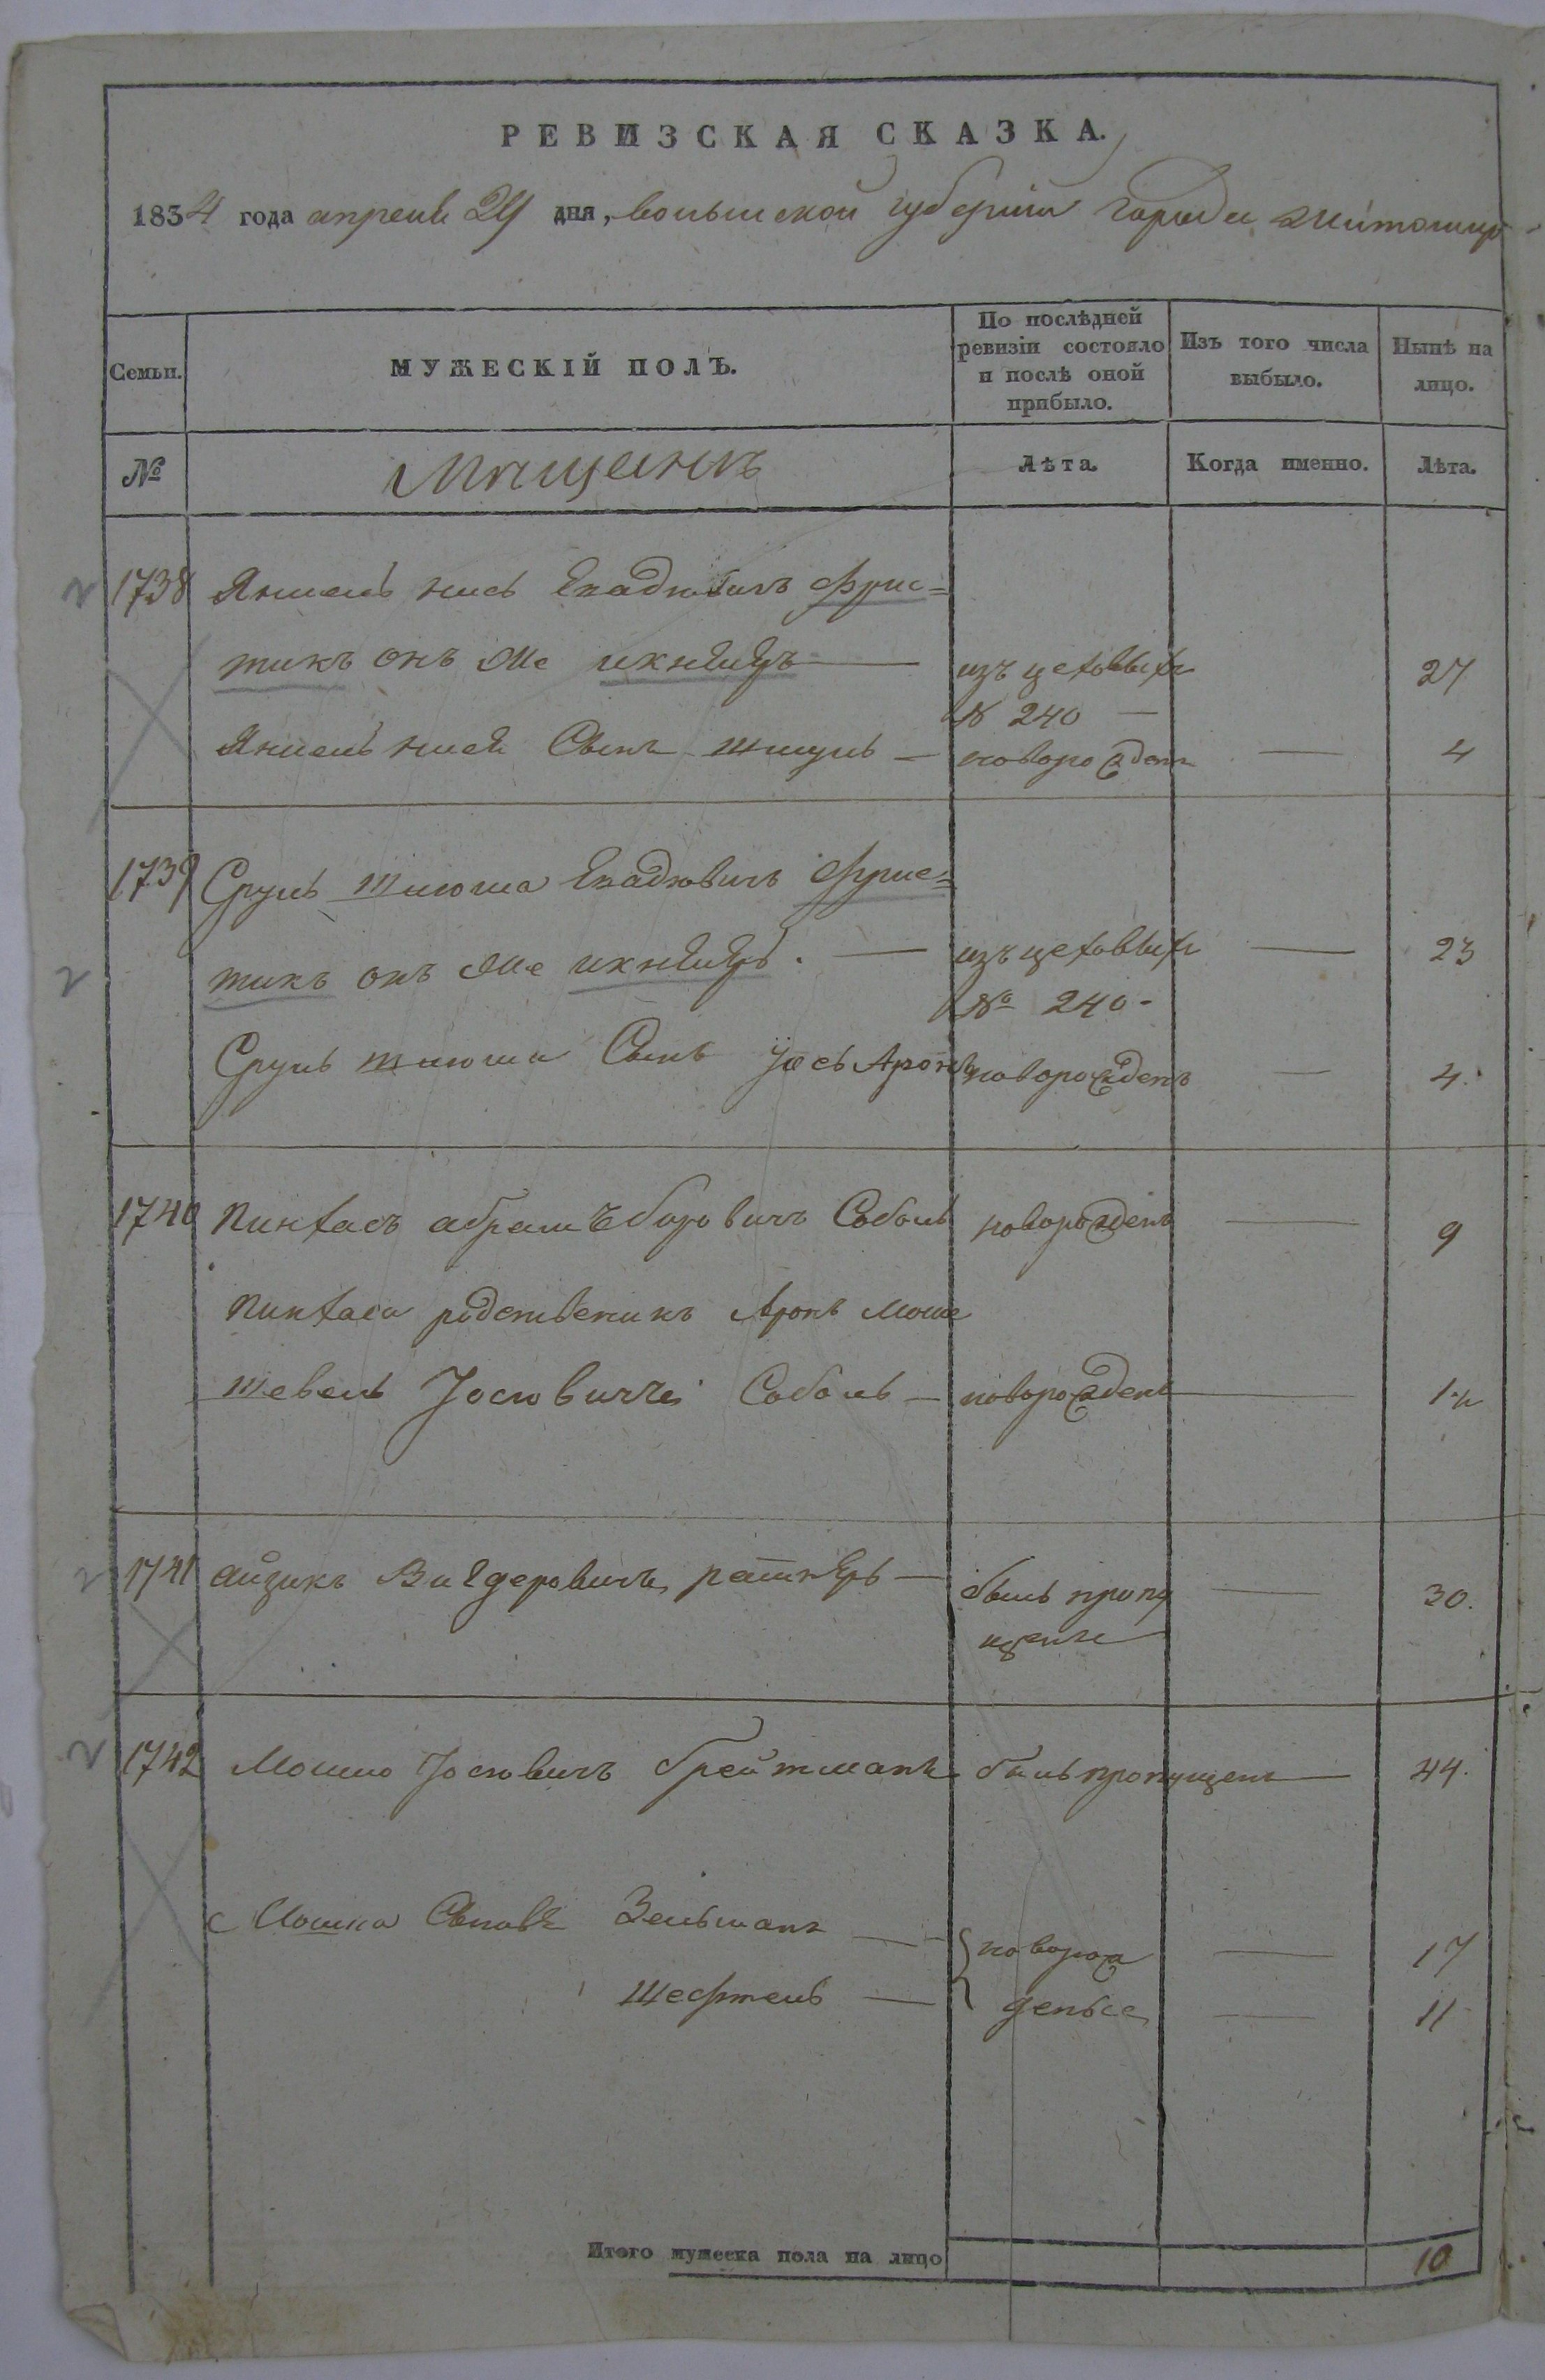 РЕВИЗСКАЯ СКАЗКА.
1834 года апреля 24 дня, волынской губернии города житомир
Семьи.
МУЖЕСКІЙ ПОЛЪ.
По послѣдней ревизіи состояло и послѣ оной прибыло.
Изъ того числа выбыло.
Нынѣ на лицо.
№
Мѣщанъ
Лѣта.
Когда именно.
Лѣта.
1738
фрис=
тикъ онъ же
изъ цеховыхъ
27
№ 240 —
Сынъ шмуль — новорожденъ — 4
1739 Сруль фрис=
тикъ онъ же — изъ цеховыхъ — 23
№ 240 -
Сруль Сынъ новорожденъ — 4.
1740 Пинхасъ абрамъ боровичъ Соболь новорожденъ — 9
Пинхаса родственикъ Аронъ Моше
шевель Іосіовичъ Соболь — новорожденъ —
1741 айзикъ ратнеръ — былъ пропу — 30.
щенъ
1742 Мошко Іосіовичъ брейтманъ былъ пропущенъ — 44.
Мошка Сыновѣ Зельманъ — новорож — 17
шефтель — деные — 11
Итого мужеска пола на лицо 10